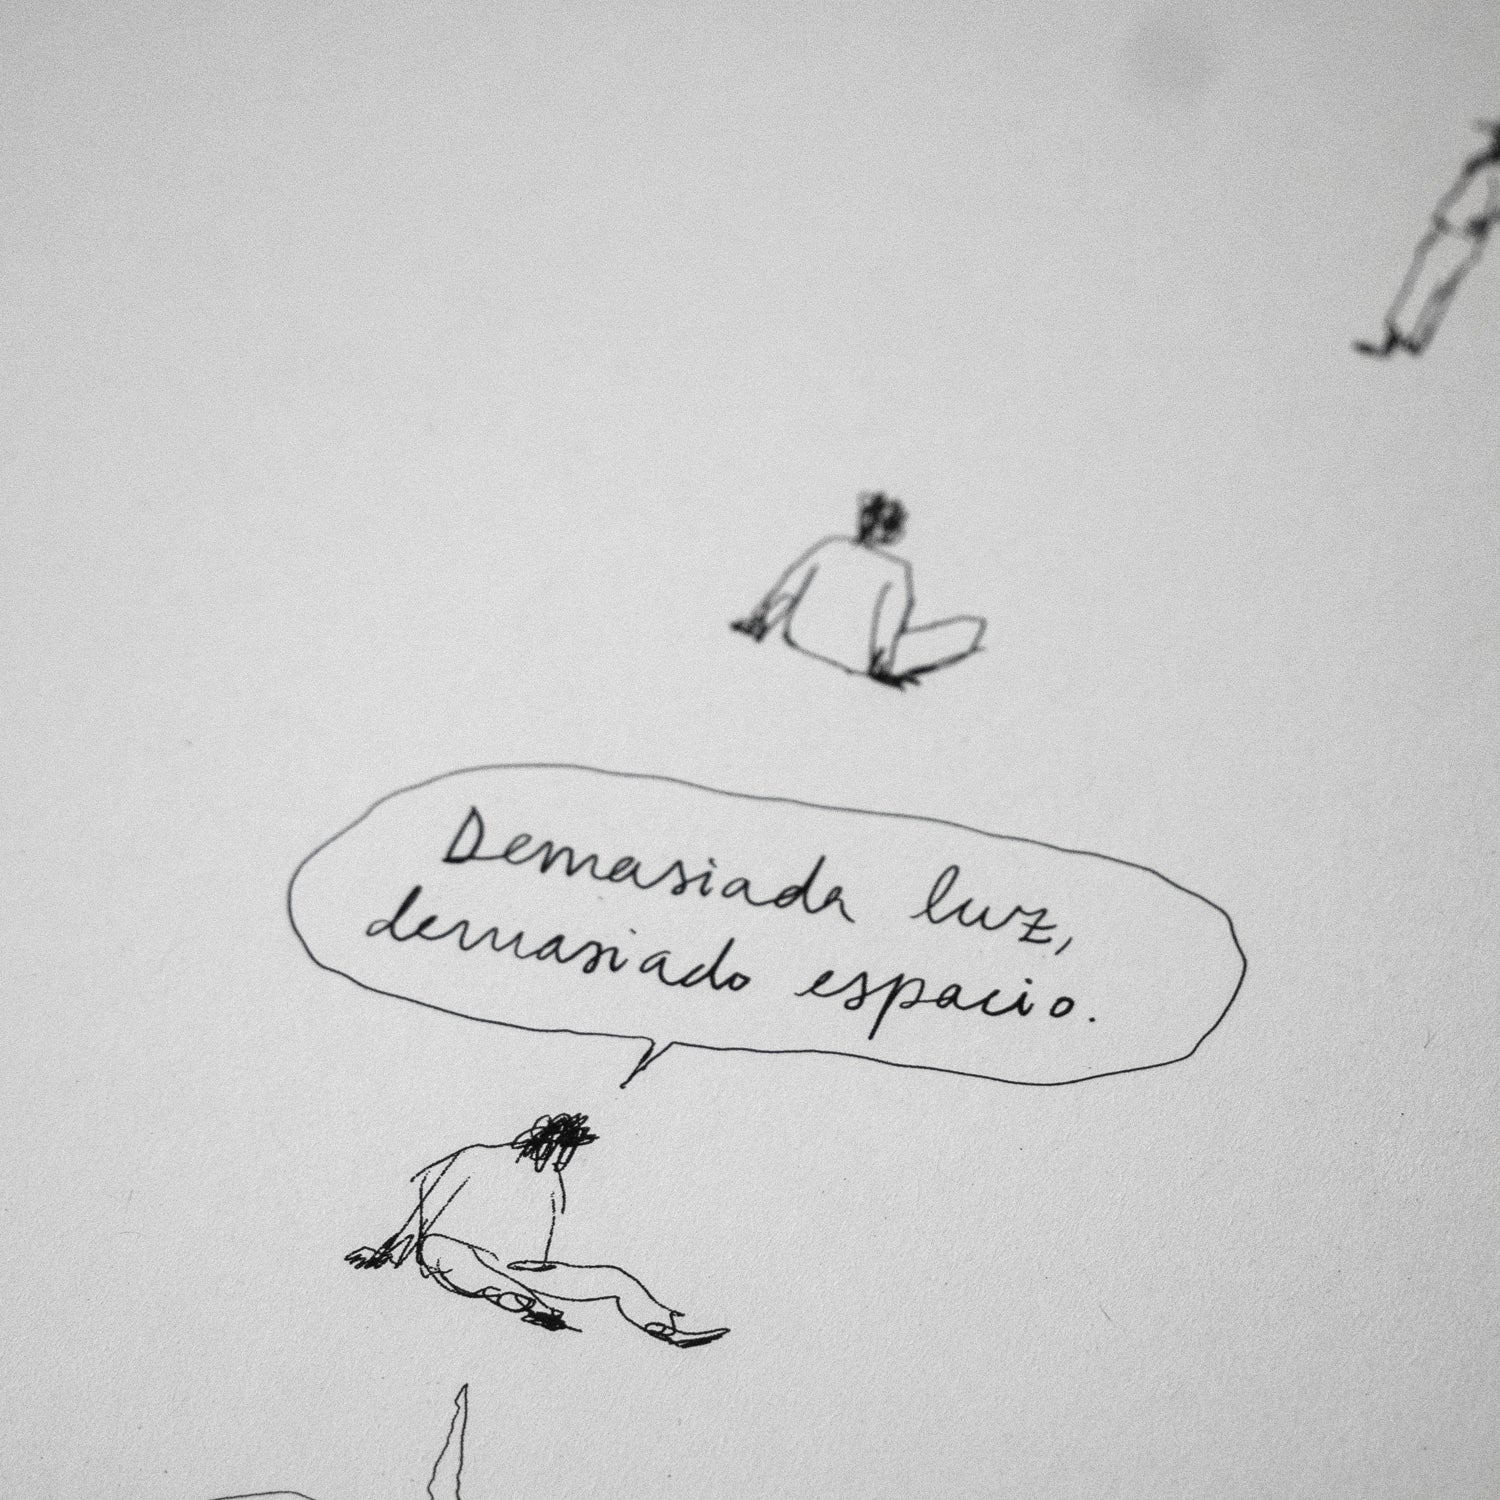 Demasiada luz,
demasiado espacio.